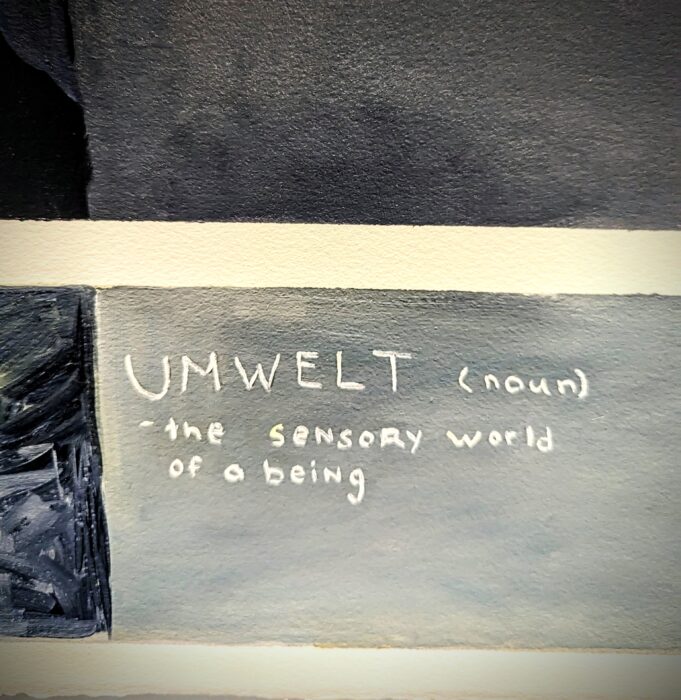 UMWELT (noun)
- the SENSORY world
of a being